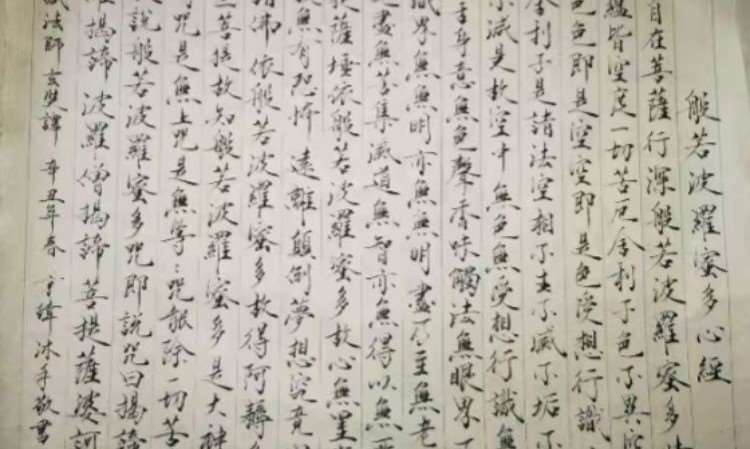 般若波羅蜜多心經
自在菩薩行深般若波羅蜜多時
蘊皆空度一切苦厄舍利子色不異空
色即是空空即是色受想行識
舍利子是諸法空相不生不滅不垢不
不減是故空中無色無受想行識無
舌身意無色聲香味觸法無眼界
識界無無明亦無無明盡乃至無老
老盡無苦集滅道無智亦無得以無所
提薩埵依般若波羅蜜多故心無罣
故無有恐怖遠離顛倒夢想究竟
諸佛依般若波羅蜜多故得阿耨多
三菩提故知般若波羅蜜多是大神
明咒是無上咒是無等:咒能除一切苦
故說般若波羅蜜多咒即說咒曰揭諦
羅揭諦波羅僧揭諦菩提薩婆訶
藏法師玄奘譯辛丑年春沐手敬書